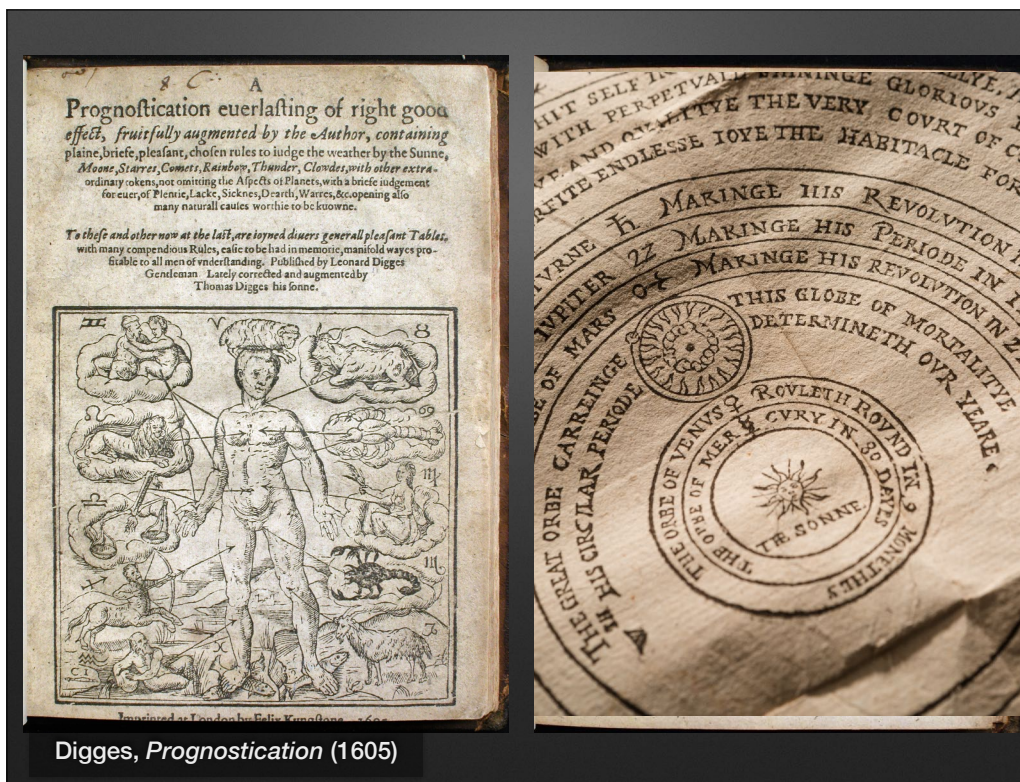 A
Prognoſtication euerlaſting of right good
effect, fruitfully augmented by the Author, containing
plaine, briefe, pleaſant, choſen rules to iudge the weather by the Sunne,
Moone, Starres, Comets, Rainbow, Thunder, Clowdes, with other extra-
ordinary tokens, not omitting the Aſpects of Planets, with a briefe iudgement
for euer, of Plentie, Lacke, Sicknes, Dearth, Warres, &c. opening alſo
many naturall cauſes worthie to be knowne.
To theſe and other now at the laſt, are ioyned diuers generall pleaſant Tables,
with many compendious Rules, eaſie to be had in memorie, manifold wayes pro-
fitable to all men of vnderſtanding. Publiſhed by Leonard Digges
Gentleman. Lately corrected and augmented by
Thomas Digges his ſonne.
Imprinted at London by Felix Kyngſtone. 1605
WITH PERPETVALL SHININGE GLORIOVS
THE VERY COVRT OF
ENDLESSE IOYE THE HABITACLE FOR
♄ MAKINGE HIS REVOLUTION
IVPITER ♃ MAKINGE HIS PERIODE IN
OF MARS ♂ MAKINGE HIS REVOLUTION IN 2
THE GREAT ORBE CARRENINGE THIS GLOBE OF MORTALITYE
HIS CIRCVLAR PERIODE DETERMINETH OVR YEARE
THE ORBE OF VENVS ♀ ROVLETH ROVND IN 9 MONETHES
THE ORBE OF MERCVRY IN 80 DAYES
THE SONNE
Digges, Prognostication (1605)